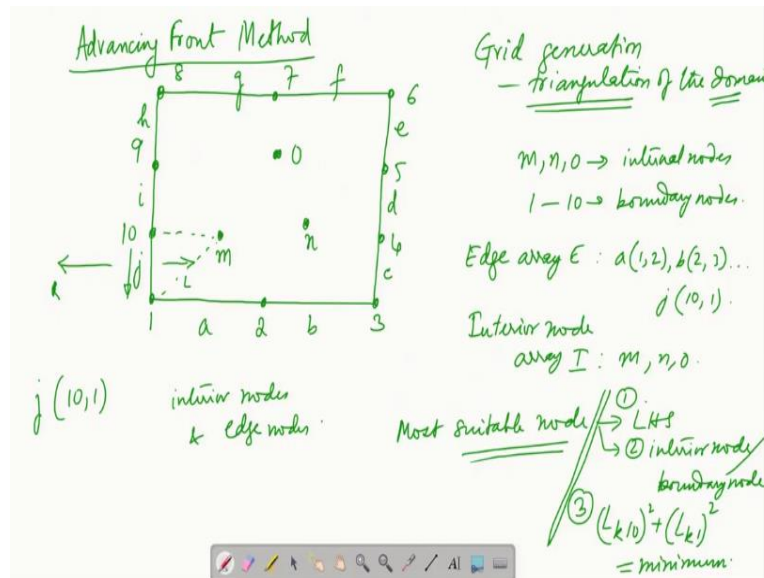 Advancing Front Method
8 g 7 f 6
h
e
9
O
5
i
d
10
m
n
4
j
L
c
R
1 a 2 b 3
j (10,1)
interior nodes
& edge nodes.
Grid generation
— triangulation of the domain
m, n, o → internal nodes
1 – 10 → boundary nodes.
Edge array E : a(1,2), b(2,3)...
j(10,1).
Interior node
array I : m, n, o.
Most suitable node
① → LHS
→ ② interior node/
boundary node
③ (Lk10)² + (Lk1)²
= minimum.